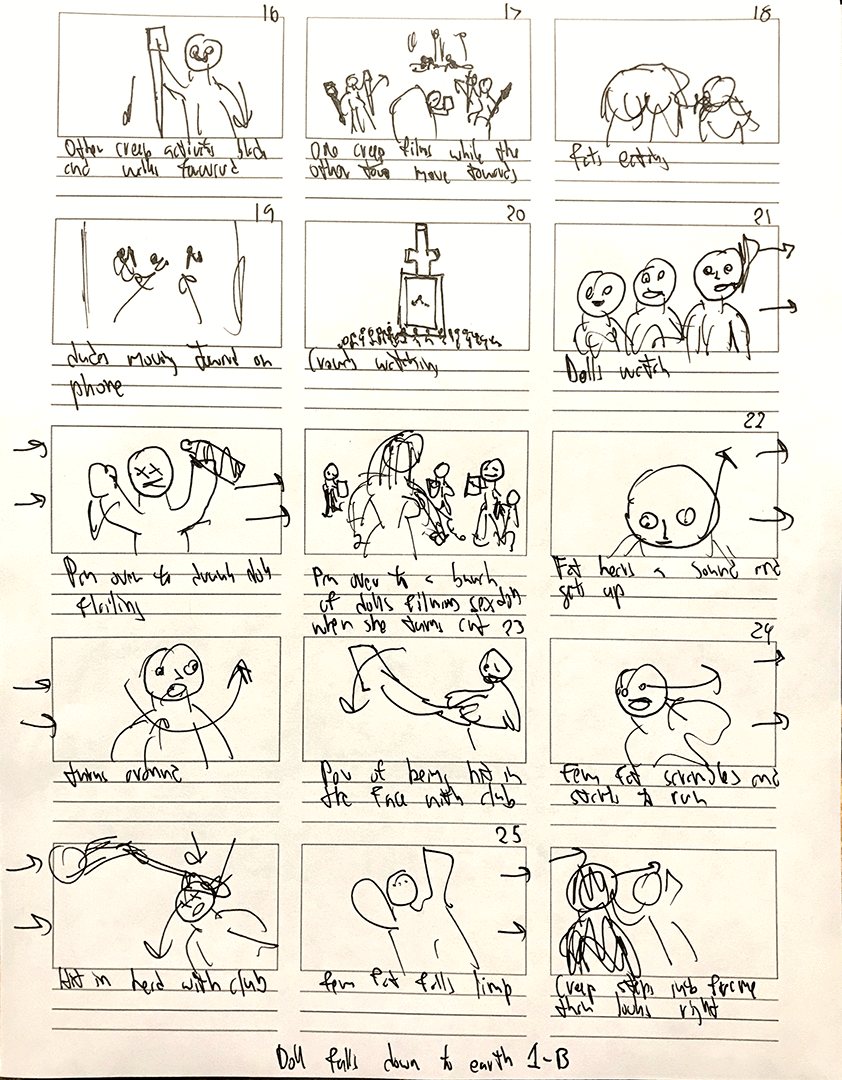 16
17
18
Other creep activates
and walks forward
One creep films while the
other two move towards
Fats eating
19
20
21
dudes moving toward on
phone
Crowd watching
Dolls watch
22
Pan over to drunk doll
flailing
Pan over to a bunch
of dolls filming sexdoll
when she turns cut 23
Fat hears a sound and
gets up
24
turns around
Pov of being hit in
the face with club
Fem fat scrambles and
starts to run
25
Hit in head with club
fem fat falls limp
Creep steps into frame
then looks right
Doll falls down to earth 1-B